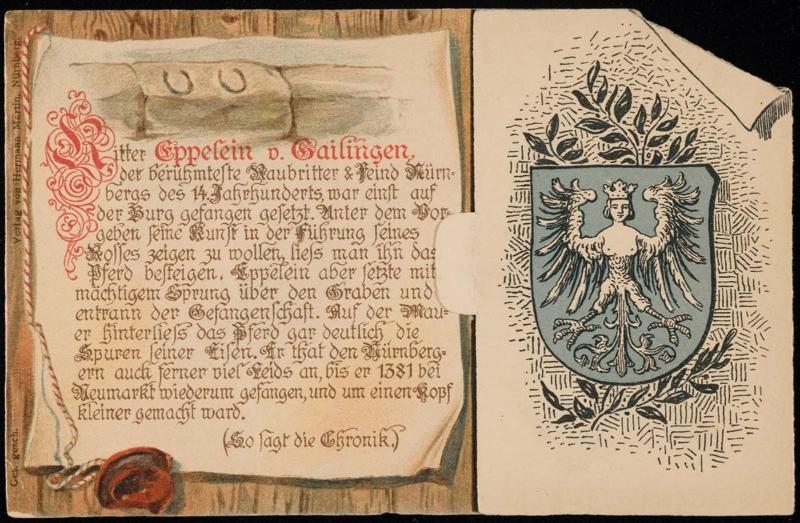 Ritter Eppelein v. Gailingen,
der berühmteste Raubritter & Feind Nürn-
bergs des 14. Jahrhunderts, war einst auf
der Burg gefangen gesetzt. Unter dem Vor-
geben seine Kunst in der Führung seines
Rosses zeigen zu wollen, liess man ihn das
Pferd besteigen. Eppelein aber setzte mit
mächtigem Sprung über den Graben und
entrann der Gefangenschaft. Auf der Mau-
er hinterliess das Pferd gar deutlich die
Spuren seiner Eisen. Er that den Nürnberg-
ern auch ferner viel Leids an, bis er 1381 bei
Neumarkt wiederum gefangen, und um einen Kopf
kleiner gemacht ward.
(So sagt die Chronik.)
Verlag von Hermann Martin, Nürnberg
Ges. gesch.